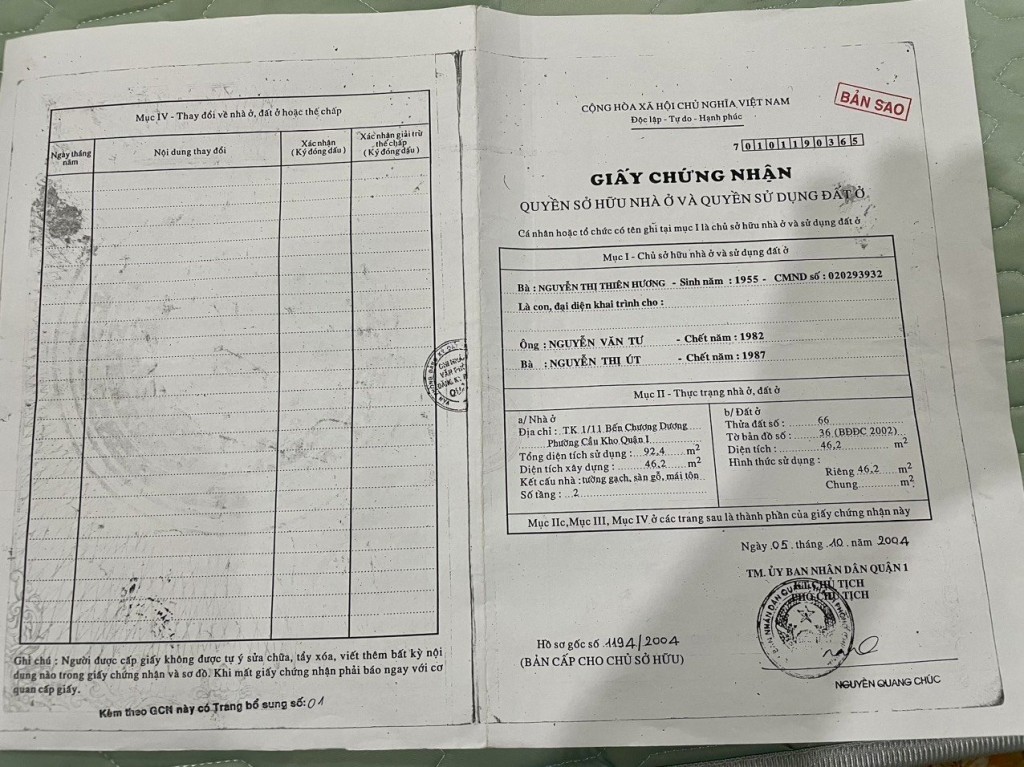 Mục IV - Thay đổi về nhà ở, đất ở hoặc thế chấp
Ngày tháng năm
Nội dung thay đổi
Xác nhận
( Ký đóng dấu )
Xác nhận giải trừ
thế chấp
( Ký đóng dấu )
Ghi chú : Người được cấp giấy không được tự ý sửa chữa, tẩy xóa, viết thêm bất kỳ nội
dung nào trong giấy chứng nhận và sơ đồ. Khi mất giấy chứng nhận phải báo ngay với cơ
quan cấp giấy.
Kèm theo GCN này có Trang bổ sung số: 01
CỘNG HÒA XÃ HỘI CHỦ NGHĨA VIỆT NAM
Độc lập - Tự do - Hạnh phúc
BẢN SAO
7 0 1 0 1 1 9 0 3 6 5
GIẤY CHỨNG NHẬN
QUYỀN SỞ HỮU NHÀ Ở VÀ QUYỀN SỬ DỤNG ĐẤT Ở
Cá nhân hoặc tổ chức có tên ghi tại mục I là chủ sở hữu nhà ở và sử dụng đất ở
Mục I - Chủ sở hữu nhà ở và sử dụng đất ở
Bà : NGUYỄN THỊ THIÊN HƯƠNG - Sinh năm : 1955 - CMND số : 020293932
Là con, đại diện khai trình cho :
Ông : NGUYỄN VĂN TƯ - Chết năm : 1982
Bà : NGUYỄN THỊ ÚT - Chết năm : 1987
Mục II - Thực trạng nhà ở, đất ở
a/ Nhà ở
Địa chỉ : TK 1/11 Bến Chương Dương
Phường Cầu Kho Quận 1
Tổng diện tích sử dụng : 92,4 m2
Diện tích xây dựng : 46,2 m2
Kết cấu nhà : tường gạch, sàn gỗ, mái tôn
Số tầng : 2
b/ Đất ở
Thửa đất số : 66
Tờ bản đồ số : 36 (BĐĐC 2002)
Diện tích : 46,2 m2
Hình thức sử dụng :
Riêng 46,2 m2
Chung m2
Mục IIc, Mục III, Mục IV ở các trang sau là thành phần của giấy chứng nhận này
Ngày 05 tháng 10 năm 2004
TM. ỦY BAN NHÂN DÂN QUẬN 1
KT. CHỦ TỊCH
PHÓ CHỦ TỊCH
Hồ sơ gốc số 1194/2004
(BẢN CẤP CHO CHỦ SỞ HỮU)
NGUYỄN QUANG CHÚC